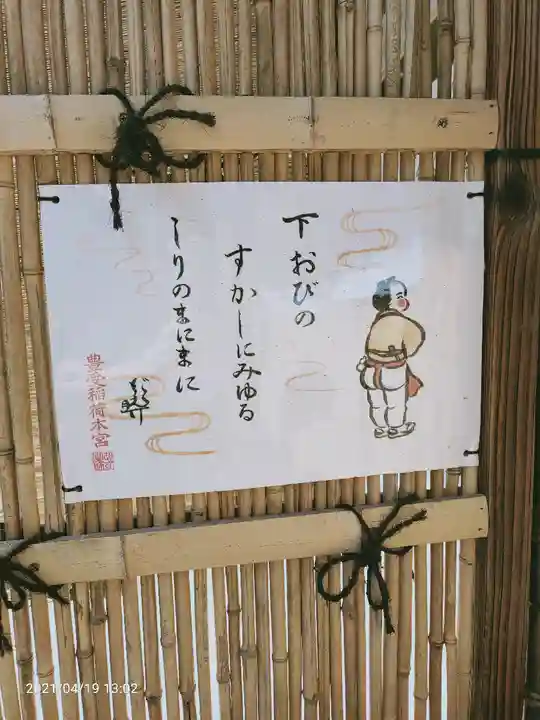 下おびの
すかしにみゆる
しりのまにまに
豊受稲荷本宮
2021/04/19 13:02